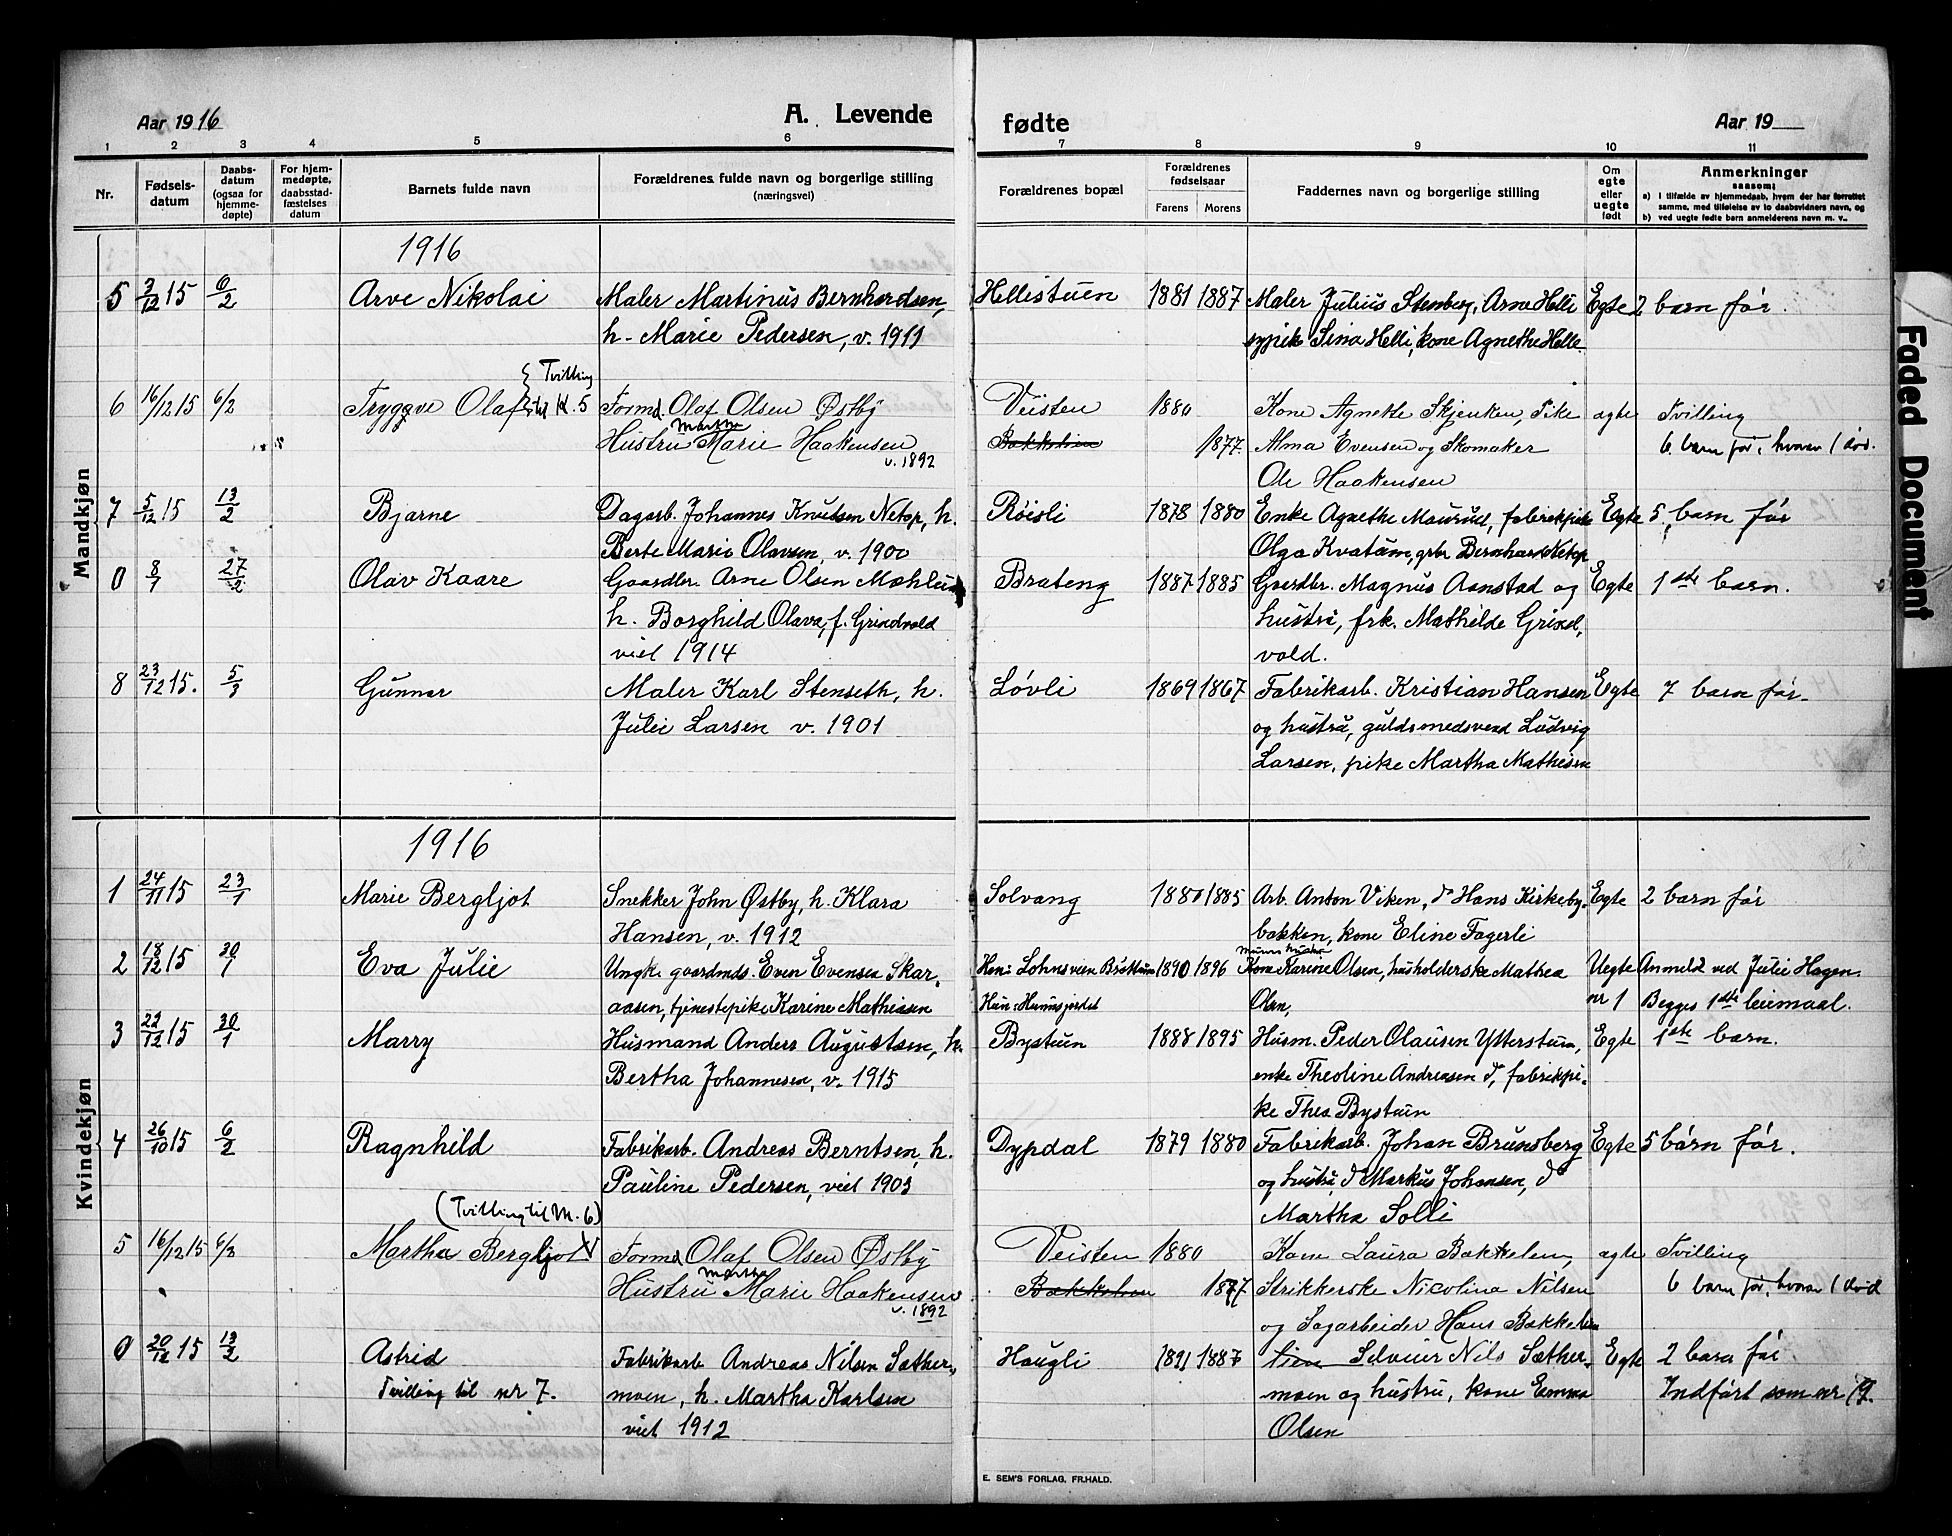 Aar 1916
A. Levende
fødte
Aar 19
1 2 3 4 5 6 7 8 9 10 11
Nr.
Fødsels-
datum
Daabs-
datum
(ogsaa for
hjemme-
døpte)
For hjem-
medøpte,
daabsstad-
fæstelses
datum
Barnets fulde navn
Forældrenes fulde navn og borgerlige stilling
(næringsvei)
Forældrenes bopæl
Forældrenes
fødselsaar
Farens Morens
Faddernes navn og borgerlige stilling
Om
egte
eller
uegte
født
Anmerkninger
saasom:
a) I tilfælde av hjemmedaab, hvem der har forrettet
samme, med tilføielse av to daabsvidners navn, og
b) ved uegte fødte barn anmelderens navn m. v..
Mandkjøn
1916
5 3/12 15 6/2 Arve Nikolai Maler Martinus Bernhardsen, Hellistuen 1881 1887 Maler Julius Stenberg, Arne Helli Egte 2 barn før.
h. Marie Pedersen, v. 1911 sypik Sina Helli, kone Agnethe Helle.
{ Tvilling
6 16/12 15 6/2 Tryggve Olaf til K. 5 Formd. Olaf Olsen Østby Veisten 1880 Kone Agnethe Skjenken, Pike ægte Tvilling
Martha
Hustru Marie Haakensen 1877 Alma Evensen og Skomaker 6 barn før, hvorav 1 død.
v. 1892
Ole Haakensen
7 5/12 15 13/2 Bjarne Dagarb. Johannes Knutsen Netop, h. Røisli 1878 1880 Enke Agnethe Maurud, fabrikpike Egte 5 barn før
Berte Marie Olavsen v. 1900 Olga Kvatum, grbr Bernhard Netop
0 8/1 27/2 Olav Kaare Gaardbr. Arne Olsen Mæhlum Brateng 1887 1885 Gaardbr. Magnus Aanstad og Egte 1ste barn.
h. Borghild Olava, f. Grindvold hustru, frk. Mathilde Grind,
viet 1914 vold.
8 23/12 15. 5/3 Gunnar Maler Karl Stenseth, h. Løvli 1869 1867 Fabrikarb. Kristian Hansen Egte 7 barn før.
Julie Larsen v. 1901 og hustru, guldsmedsvend Ludvig
Larsen, pike Martha Mathisen
Kvindekjøn
1916
1 24/11 15 23/1 Marie Bergljot Snekker John Østby, h. Klara Solvang 1880 1885 Arb. Anton Viken, do Hans Kirkeby- Egte 2 barn før
Hansen, v. 1912 bakken, kone Eline Fagerli
2 18/12 15 30/1 Eva Julie Ungk. gaardmds. Even Evensen Skar- Han: Lohnsveen Brøttum 1890 1896 Kone Karine Olsen, husholderske Mathea Uegte Anmeld ved Julie Hagen.
aasen, tjenestepike Karine Mathiesen Hun: Olsen, nr 1 Begges 1ste leiemaal.
3 22/12 15 30/1 Marry Husmand Anders Augustsen, h. Bystuen 1888 1895 Husm. Peder Olausen Ytterstuen, Egte 1ste barn.
Bertha Johannesen, v. 1915 enke Theoline Andreasen do, fabrikpi-
ke Thea Bystuen
4 26/10 15 6/2 Ragnhild Fabrikarb. Andreas Berntsen, h. Dypdal 1879 1880 Fabrikarb. Johan Brunsberg Egte 5 barn før.
Pauline Pedersen, viet 1903 og hustru, do Markus Johansen, do
Martha Solli
(Tvilling til M. 6)
5 16/12 15 6/2 Martha Bergljot Formd. Olaf Olsen Østby Veisten 1880 Kone Laura Bakkelien, ægte Tvilling
Martha
Hustru Marie Haakensen 1877 Strikkerske Nicolina Nilsen 6 barn før, hvorav 1 død
v. 1892
og Sagarbeider Hans Bakkelien
0 20/12 15 13/2 Astrid Fabrikarb Andreas Nilsen Sæther- Haugli 1891 1887 Selveier Nils Sæther- Egte 2 barn før
Tvilling til nr 7. moen, h. Martha Karlsen moen og hustru, kone Emma Indført som nr 19.
viet 1912 Olsen
E. SEM'S FORLAG, FR.HALD.
Faded Document